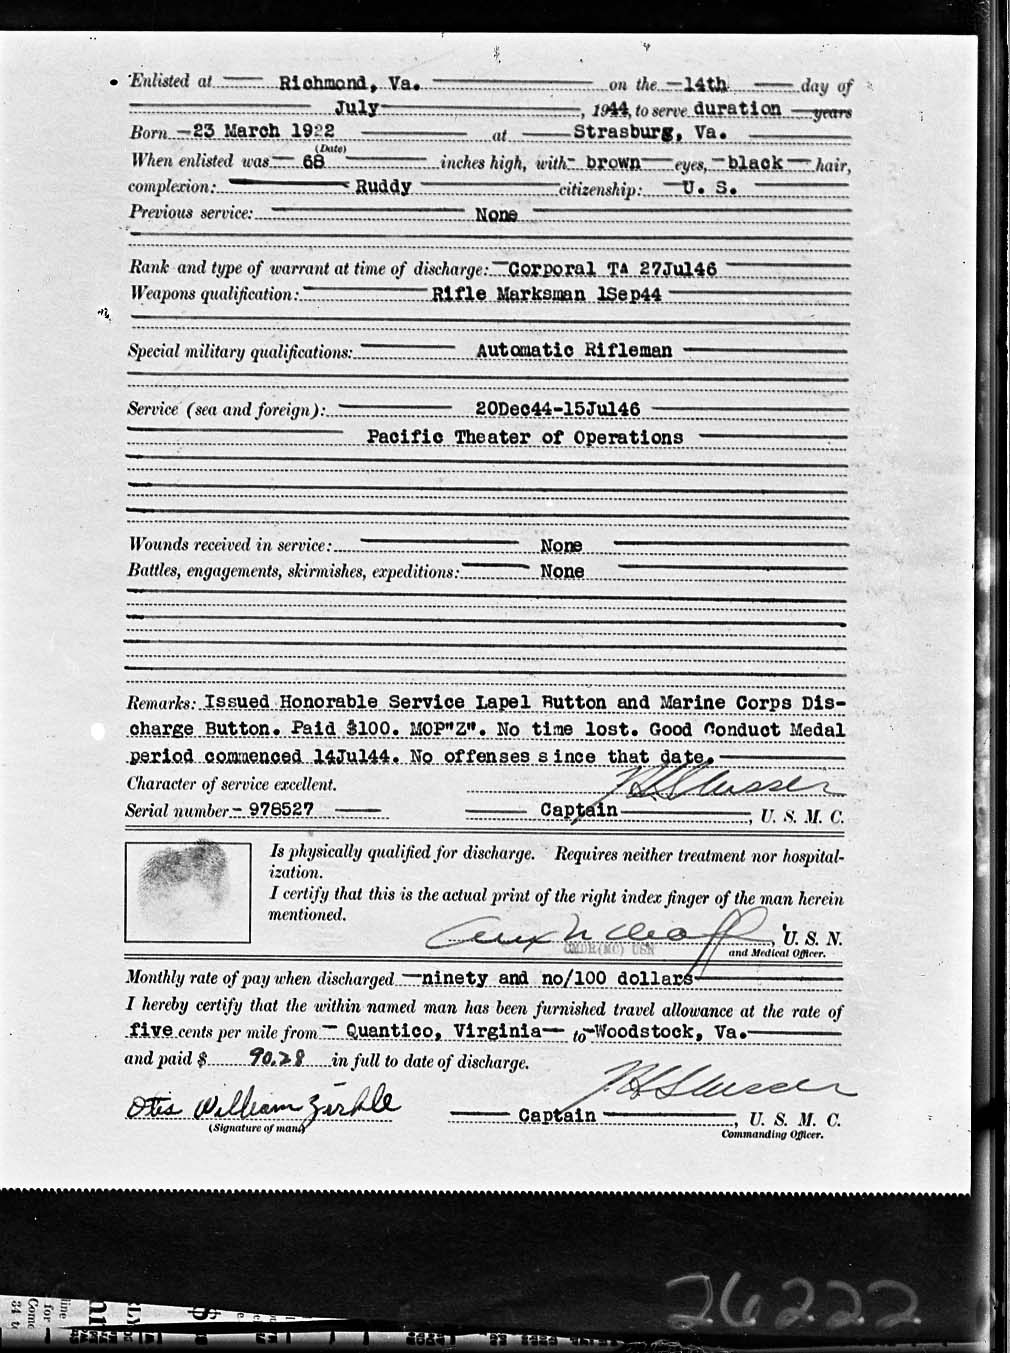 Enlisted at Richmond, Va. on the 14th day of
July, 1944, to serve duration years
Born 23 March 1922 at Strasburg, Va.
(Date)
When enlisted was 68 inches high, with brown eyes, black hair,
complexion: Ruddy citizenship: U. S.
Previous service: None
Rank and type of warrant at time of discharge: Corporal TA 27Jul46
Weapons qualification: Rifle Marksman 1Sep44
Special military qualifications: Automatic Rifleman
Service (sea and foreign): 20Dec44-15Jul46
Pacific Theater of Operations
Wounds received in service: None
Battles, engagements, skirmishes, expeditions: None
Remarks: Issued Honorable Service Lapel Button and Marine Corps Dis-
charge Button. Paid $100. MOP"Z". No time lost. Good Conduct Medal
period commenced 14Jul44. No offenses since that date.
Character of service excellent.
Serial number 978527 Captain, U. S. M. C.
Is physically qualified for discharge. Requires neither treatment nor hospital-
ization.
I certify that this is the actual print of the right index finger of the man herein
mentioned.
, U. S. N.
CMDR(MC) USN
and Medical Officer.
Monthly rate of pay when discharged ninety and no/100 dollars
I hereby certify that the within named man has been furnished travel allowance at the rate of
five cents per mile from Quantico, Virginia to Woodstock, Va.
and paid $ 90.28 in full to date of discharge.
Otis William Zirkle
(Signature of man)
Captain, U. S. M. C.
Commanding Officer.
26222